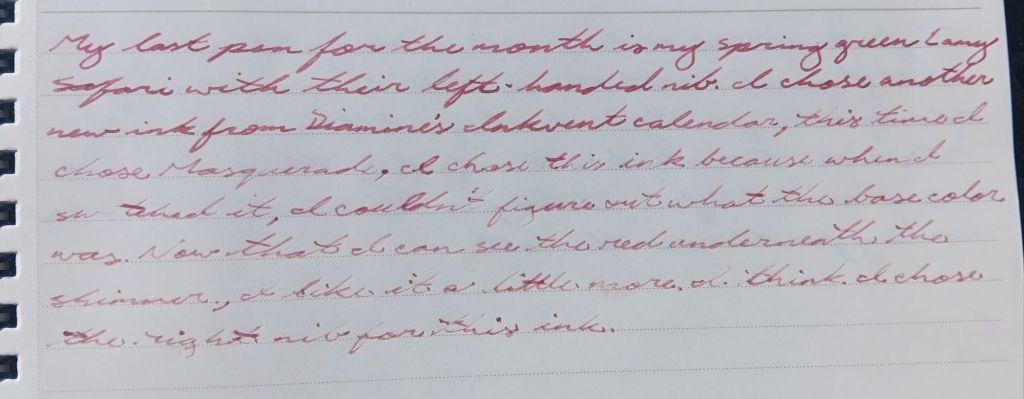 My last pen for the month is my spring green Lamy
Safari with their left-handed nib. I chose another
new ink from Diamine's Inkvent calendar, this time I
chose Masquerade. I chose this ink because when I
swatched it, I couldn't figure out what the base color
was. Now that I can see the red underneath the
shimmer, I like it a little more. I think I chose
the right nib for this ink.